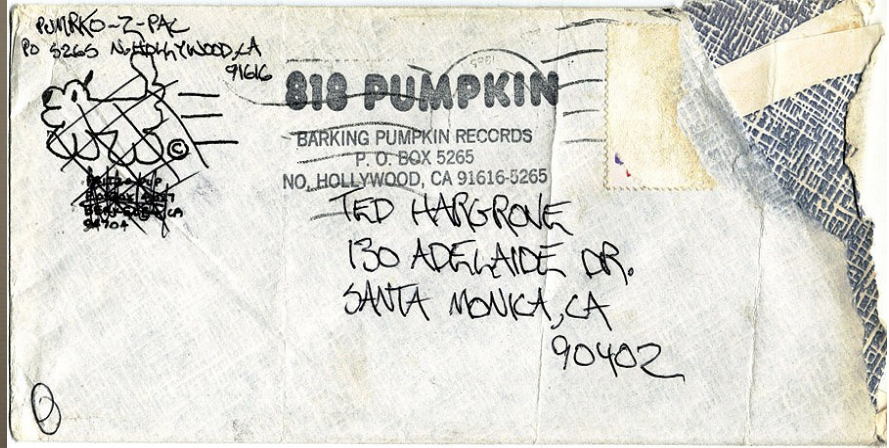 PUMPKO-Z-PAC
PO 5265 N. HOLLYWOOD, CA
91616
©
94704
818 PUMPKIN
BARKING PUMPKIN RECORDS
P. O. BOX 5265
NO. HOLLYWOOD, CA 91616-5265
TED HARGROVE
130 ADELAIDE DR.
SANTA MONICA, CA
90402